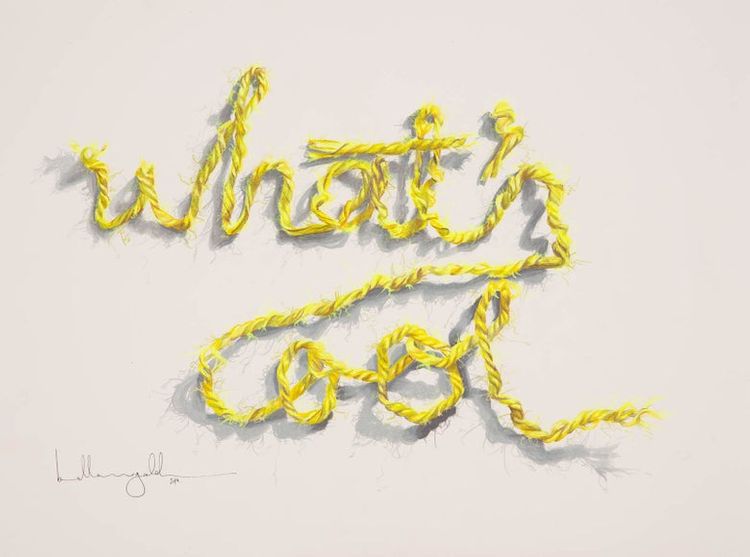 what's
cool